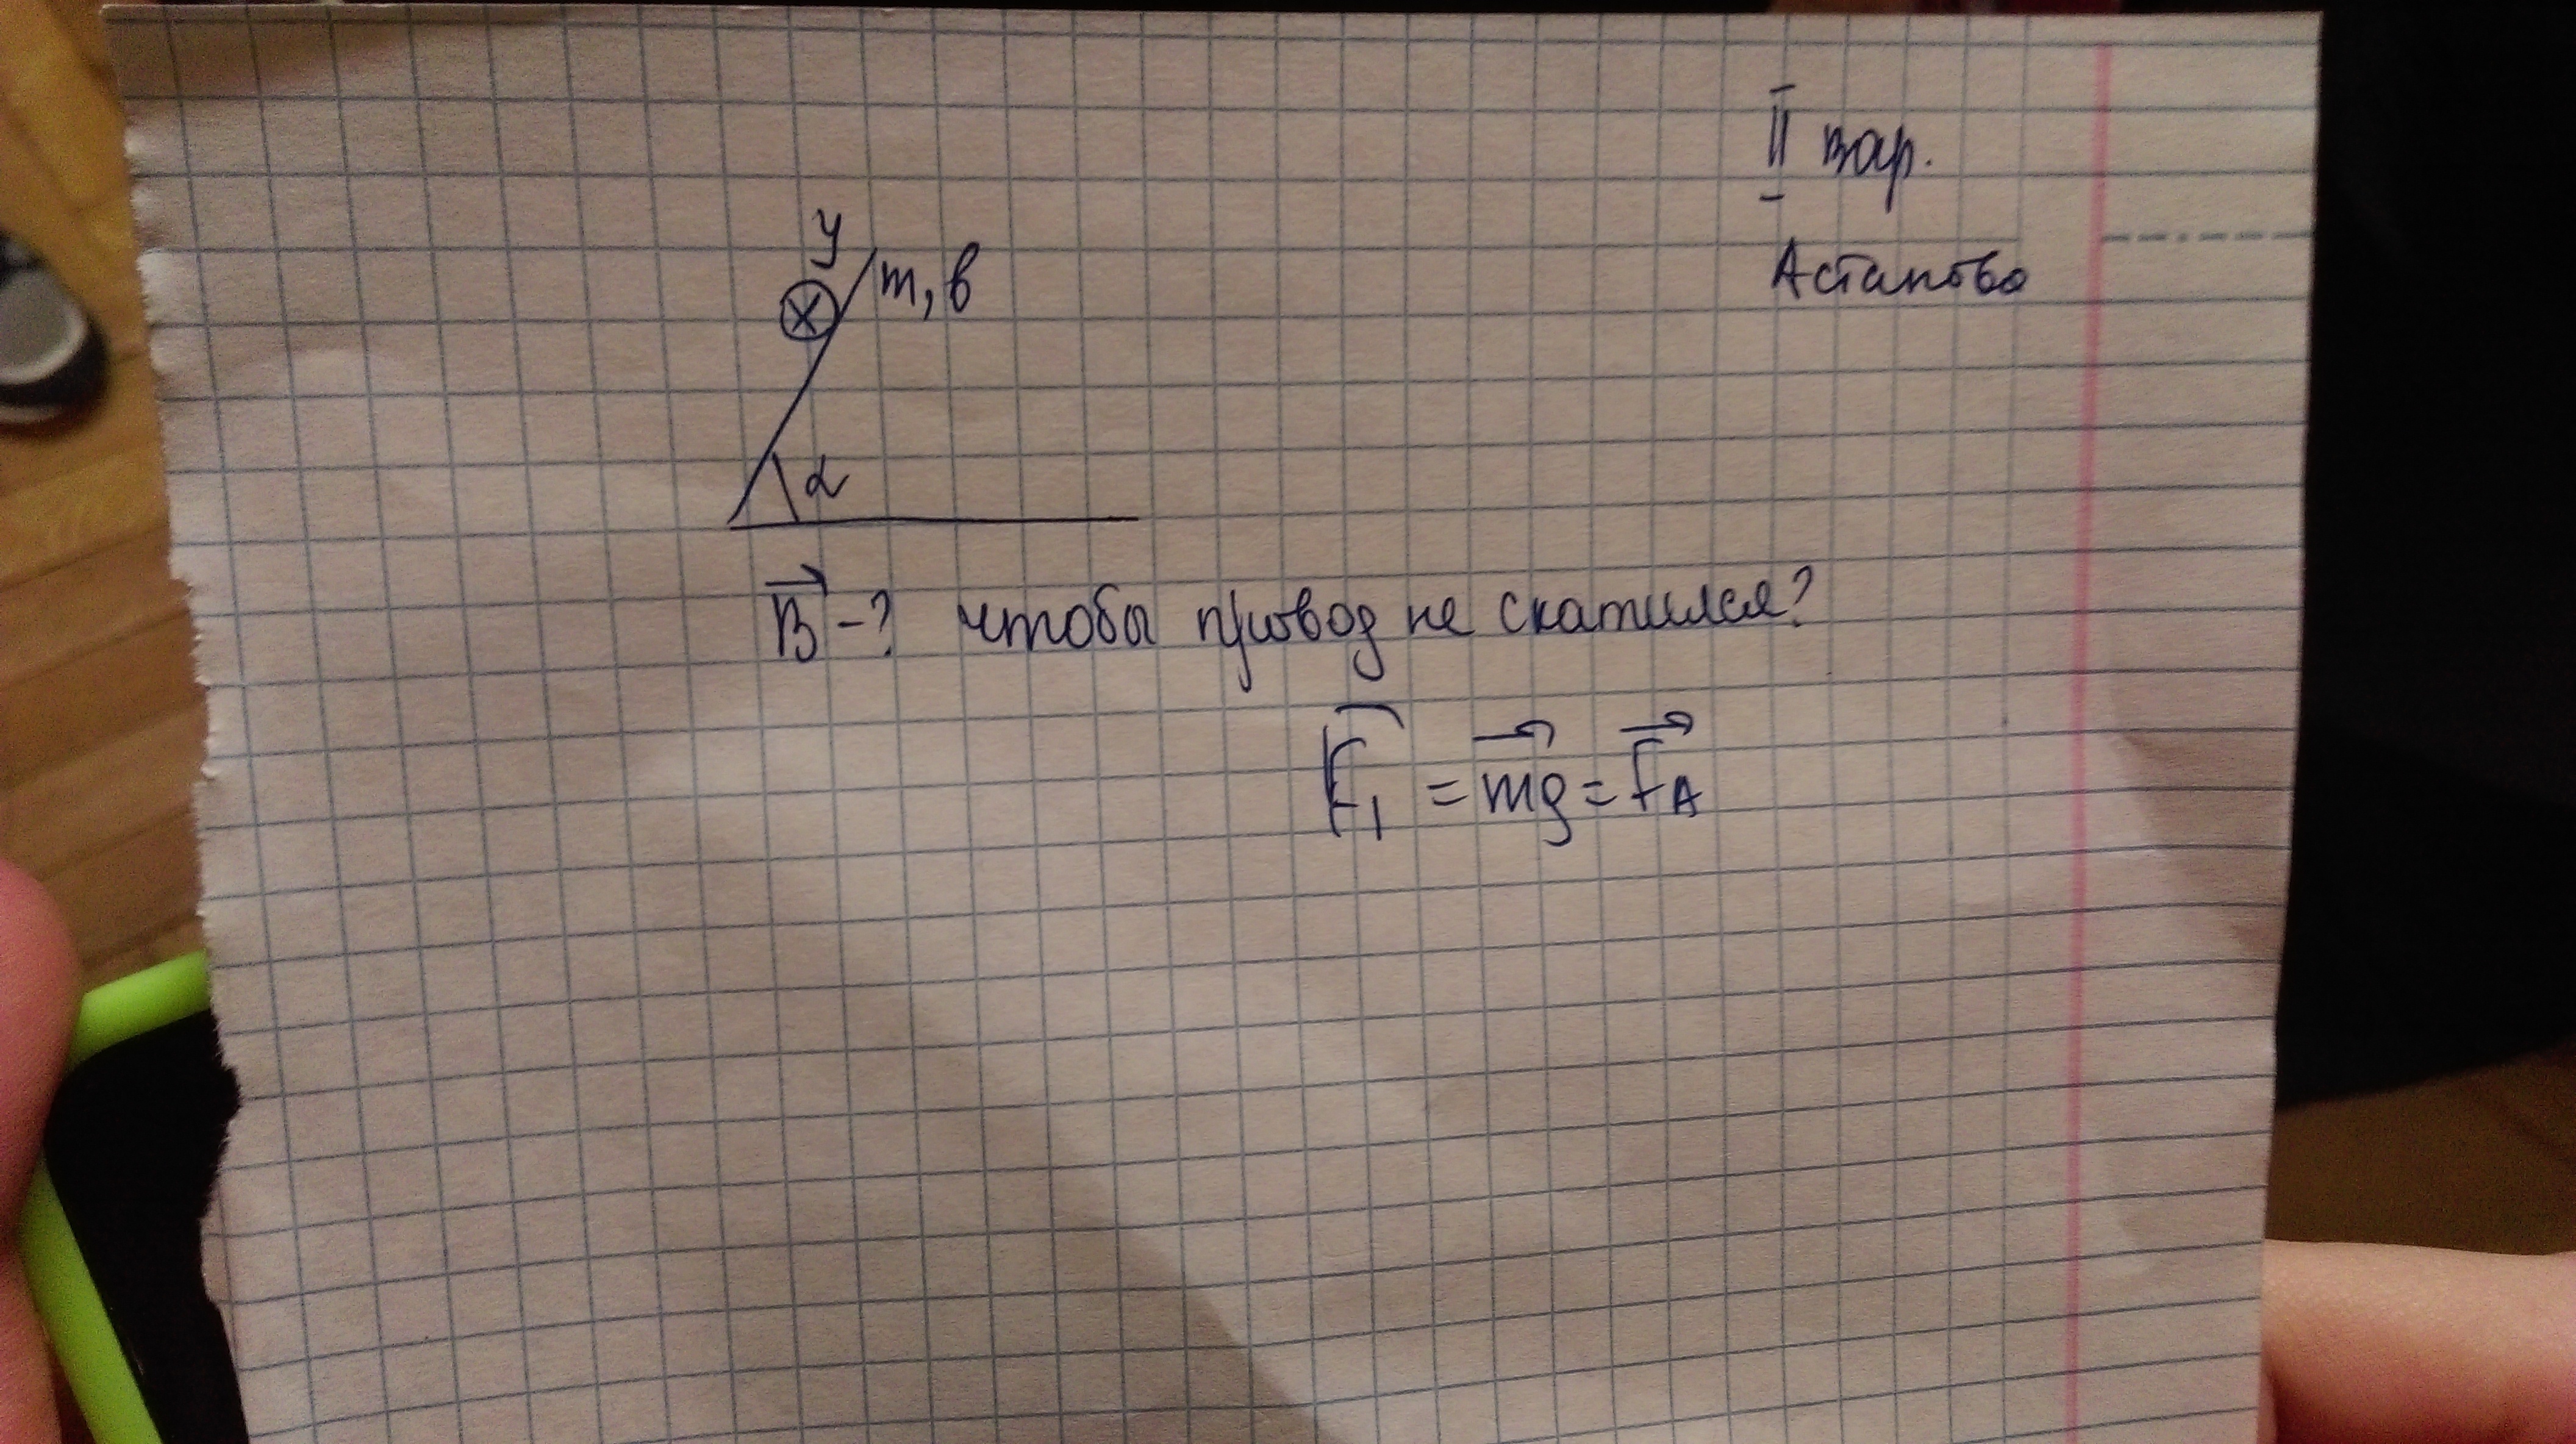 II вар.
Астапова
y
m, в
α
B - ? чтобы провод не скатился?
F₁ = mg = FA